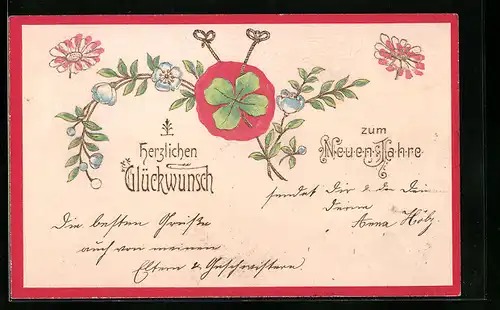 Herzlichen
Glückwunsch
zum
Neuen Jahre
sendet Dir u. den Deinen
Deine
Anna Hölz.
Die besten Grüße
auch von meinen
Eltern & Geschwistern.